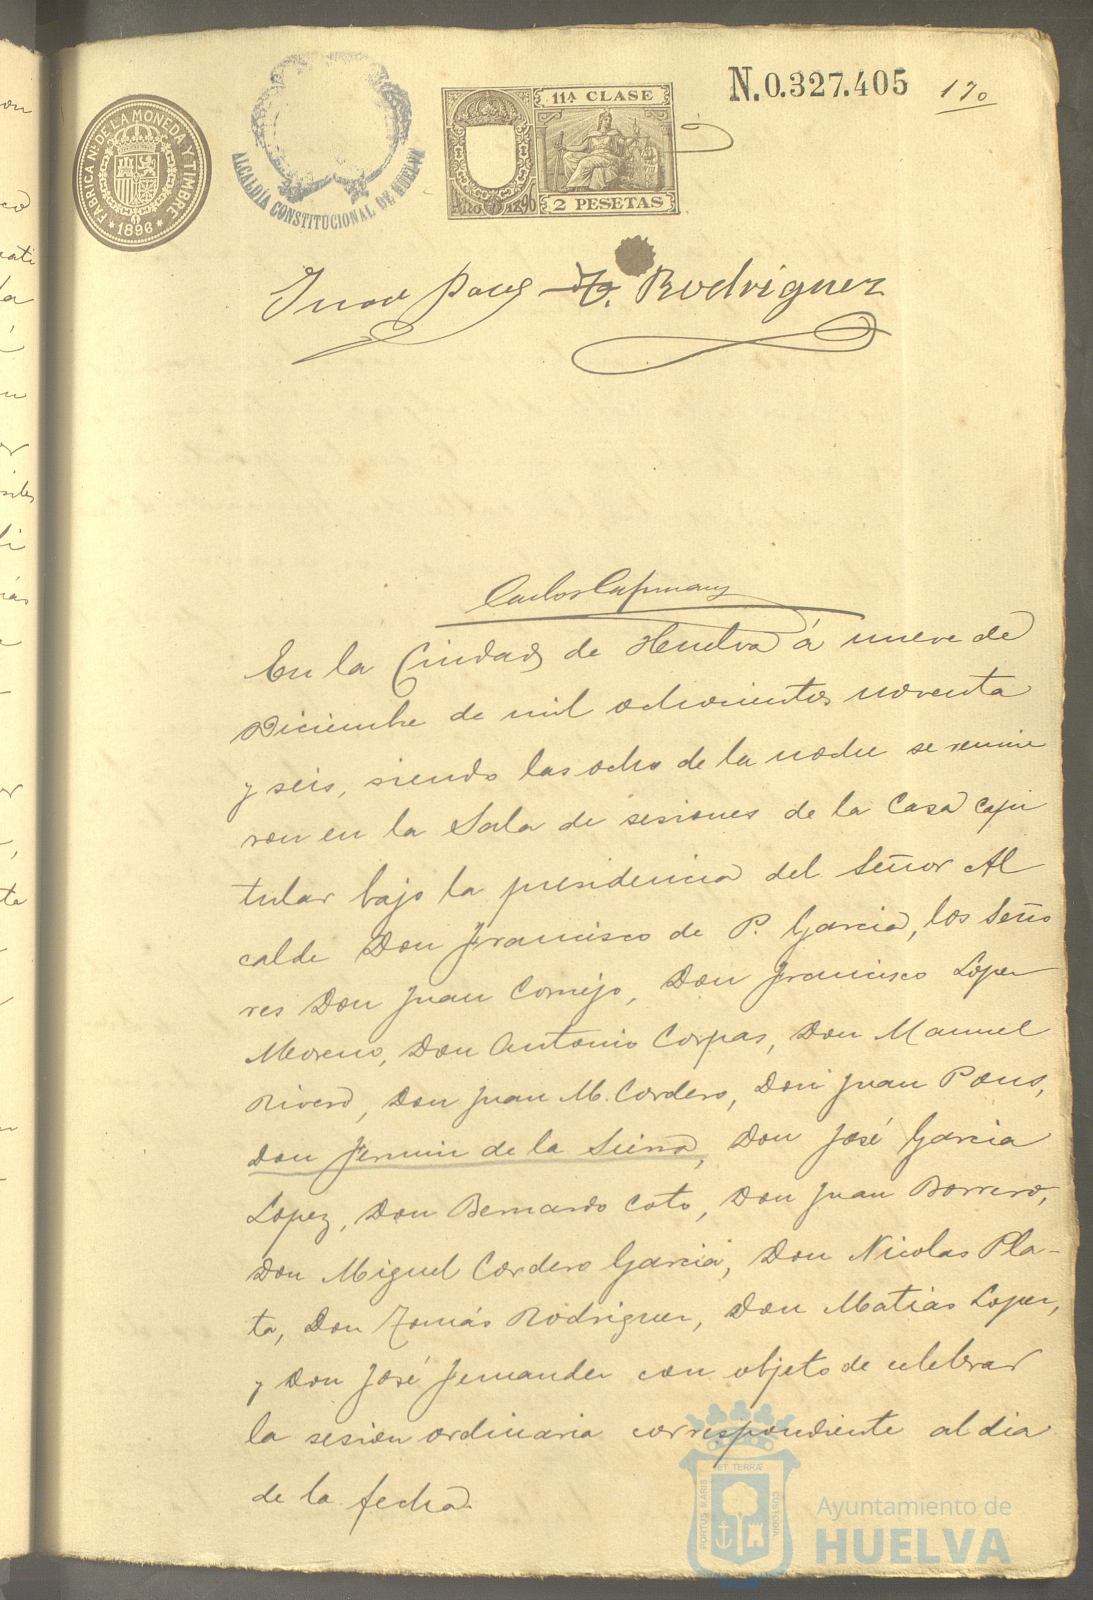 N.0.327.405
170
FABRICA NL. DE LA MONEDA Y TIMBRE
* 1896 *
ALCALDÍA CONSTITUCIONAL DE HUELVA
11ª CLASE
2 PESETAS
Juan Pons T. Rodriguez
Carlos Capmany
En la Ciudad de Huelva á nueve de
Diciembre de mil ochocientos noventa
y seis, siendo las ocho de la noche se reunie
ron en la Sala de sesiones de la Casa capi
tular bajo la presidencia del Señor Al
calde Don Francisco de P. Garcia, los Seño
res Don Juan Cornejo, Don Francisco Lopez
Moreno, Don Antonio Corpas, Don Manuel
Rivero, Don Juan M. Cordero, Don Juan Pons,
Don Fermin de la Sierra, Don José Garcia
Lopez, Don Bernardo Coto, Don Juan Borrero,
Don Miguel Cordero Garcia, Don Nicolas Pla-
ta, Don Tomás Rodriguez, Don Matias Lopez,
y Don José Fernandez con objeto de celebrar
la sesion ordinaria correspondiente al dia
de la fecha.
PORTUS MARIS ET TERRÆ CUSTODIA
Ayuntamiento de
HUELVA